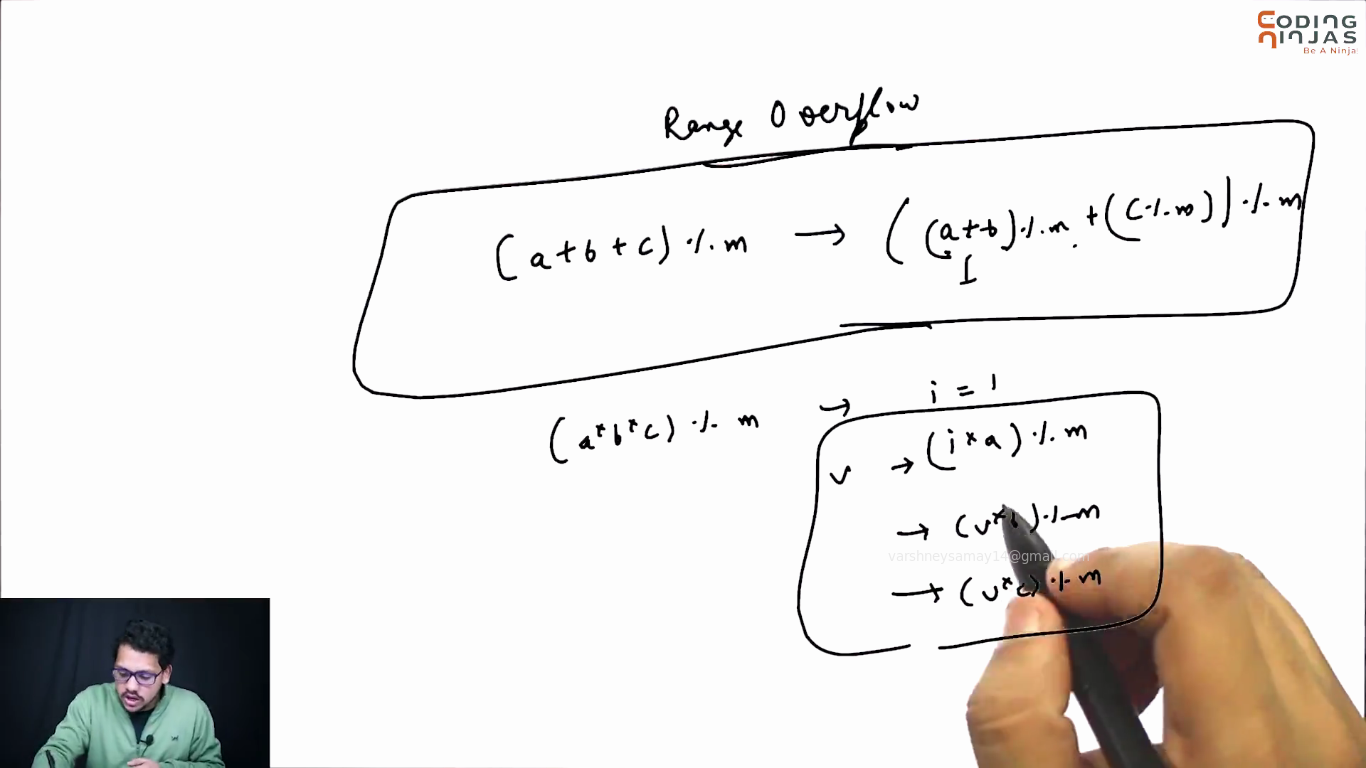 CODING
NINJAS
Be A Ninja
Range Overflow
(a+b+c) % m → ((a+b) % m + (c % m)) % m
I
(a*b*c) % m → i = 1
v → (i*a) % m
→ (v*b) % m
varshneysamay14@gmail.com
→ (v*c) % m